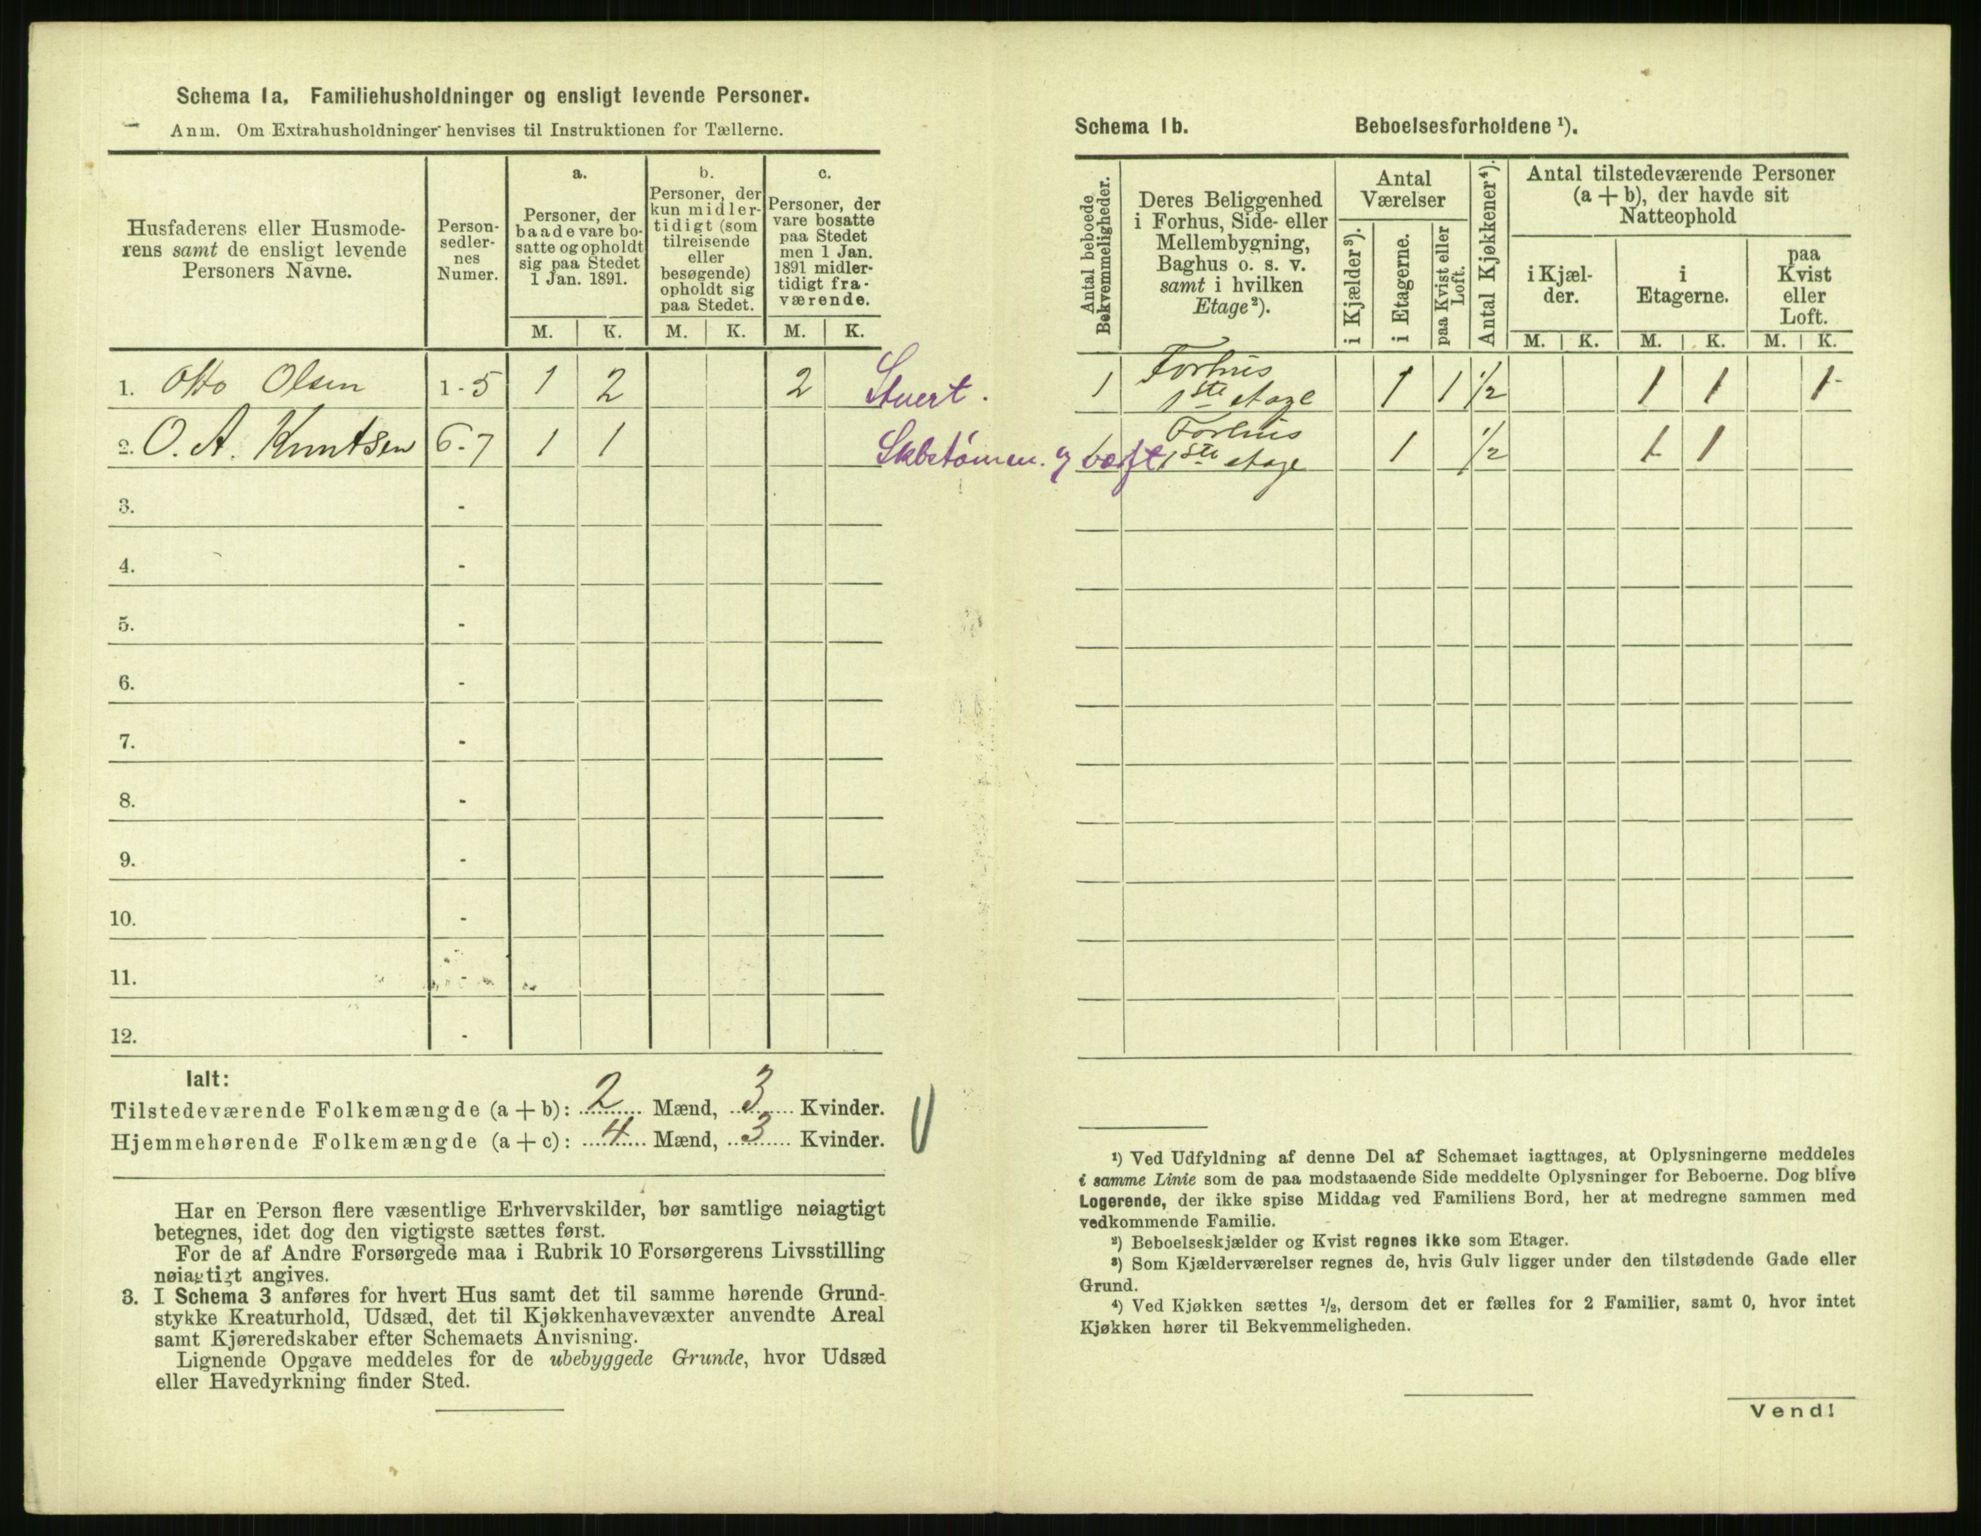 Schema 1a. Familiehusholdninger og ensligt levende Personer.
Anm. Om Extrahusholdninger henvises til Instruktionen for Tællerne.
Husfaderens eller Husmode-
rens samt de ensligt levende
Personers Navne.
Person-
sedler-
nes
Numer.
a.
Personer, der
baade vare bo-
satte og opholdt
sig paa Stedet
1 Jan. 1891.
b.
Personer, der
kun midler-
tidigt (som
tilreisende
eller
besøgende)
opholdt sig
paa Stedet.
c.
Personer, der
vare bosatte
paa Stedet
men 1 Jan.
1891 midler-
tidigt fra-
værende.
M. K. M. K. M. K.
1. Otto Olsen 1-5 1 2 2 Stuert.
2. O. A. Knutsen 6-7 1 1 og
3. -
4. -
5. -
6. -
7. -
8. -
9. -
10. -
11. -
12. -
Ialt:
Tilstedeværende Folkemængde (a + b): 2 Mænd, 3 Kvinder.
Hjemmehørende Folkemængde (a + c): 4 Mænd, 3 Kvinder.
Har en Person flere væsentlige Erhvervskilder, bør samtlige nøiagtigt
betegnes, idet dog den vigtigste sættes først.
For de af Andre Forsørgede maa i Rubrik 10 Forsørgerens Livsstilling
nøiagtigt angives.
3. I Schema 3 anføres for hvert Hus samt det til samme hørende Grund-
stykke Kreaturhold, Udsæd, det til Kjøkkenhavevæxter anvendte Areal
samt Kjøreredskaber efter Schemaets Anvisning.
Lignende Opgave meddeles for de ubebyggede Grunde, hvor Udsæd
eller Havedyrkning finder Sted.
Schema 1b. Beboelsesforholdene ¹).
Antal beboede
Bekvemmeligheder.
Deres Beliggenhed
i Forhus, Side- eller
Mellembygning,
Baghus o. s. v.
samt i hvilken
Etage²).
Antal
Værelser
i Kjælder³).
i Etagerne.
paa Kvist eller
Loft.
Antal Kjøkkener⁴).
Antal tilstedeværende Personer
(a + b), der havde sit
Natteophold
i Kjæl-
der.
i
Etagerne.
paa
Kvist
eller
Loft.
M. K. M. K. M. K.
1 Forhus
1ste etage 1 1 1/2 1 1 1
1 Forhus
1ste etage 1 1/2 1 1
¹) Ved Udfyldning af denne Del af Schemaet iagttages, at Oplysningerne meddeles
i samme Linie som de paa modstaaende Side meddelte Oplysninger for Beboerne. Dog blive
Logerende, der ikke spise Middag ved Familiens Bord, her at medregne sammen med
vedkommende Familie.
²) Beboelseskjælder og Kvist regnes ikke som Etager.
³) Som Kjælderværelser regnes de, hvis Gulv ligger under den tilstødende Gade eller
Grund.
⁴) Ved Kjøkken sættes ¹/₂, dersom det er fælles for 2 Familier, samt 0, hvor intet
Kjøkken hører til Bekvemmeligheden.
Vend!